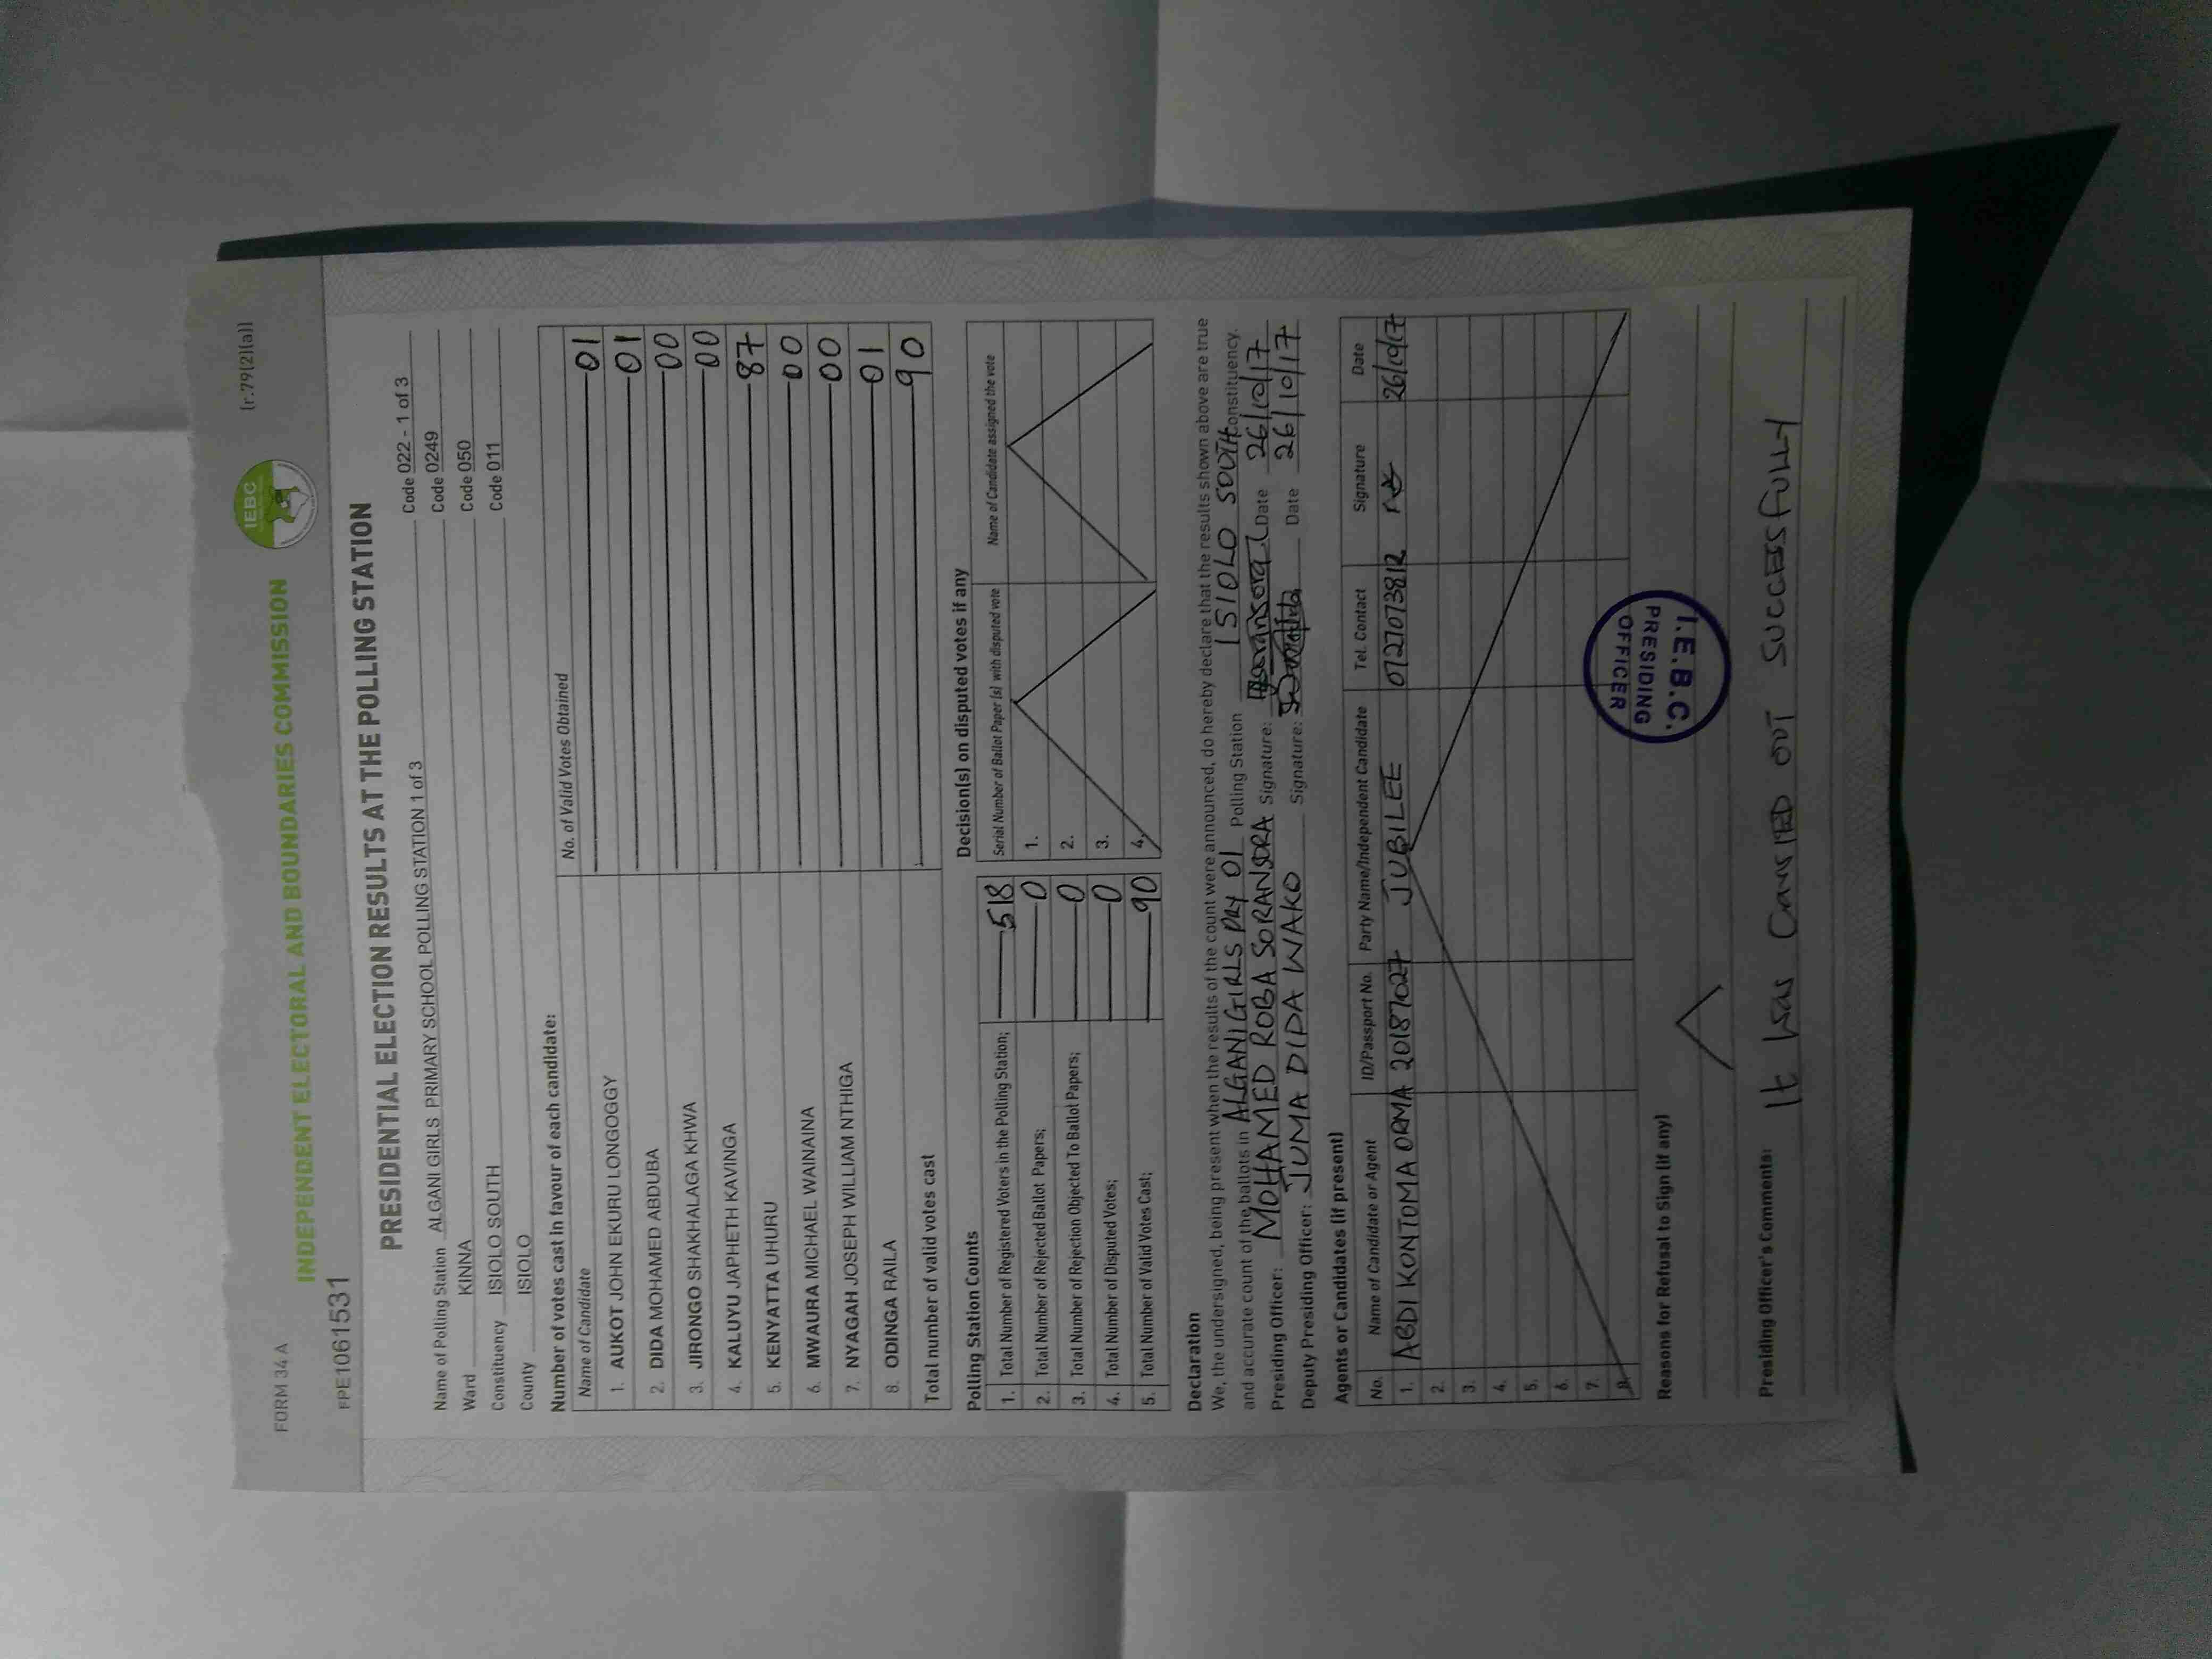 FORM 34 A
(r.79(2)(a))
INDEPENDENT ELECTORAL AND BOUNDARIES COMMISSION
IEBC
FPE1061531
PRESIDENTIAL ELECTION RESULTS AT THE POLLING STATION
Name of Polling Station ALGANI GIRLS PRIMARY SCHOOL POLLING STATION 1 of 3 Code 022 - 1 of 3
Ward KINNA Code 0249
Constituency ISIOLO SOUTH Code 050
County ISIOLO Code 011
Number of votes cast in favour of each candidate:
Name of Candidate No. of Valid Votes Obtained
1. AUKOT JOHN EKURU LONGOGGY 01
2. DIDA MOHAMED ABDUBA 01
3. JIRONGO SHAKHALAGA KHWA 00
4. KALUYU JAPHETH KAVINGA 00
5. KENYATTA UHURU 87
6. MWAURA MICHAEL WAINAINA 00
7. NYAGAH JOSEPH WILLIAM NTHIGA 00
8. ODINGA RAILA 01
Total number of valid votes cast 90
Polling Station Counts
1. Total Number of Registered Voters in the Polling Station; 518
2. Total Number of Rejected Ballot Papers; 0
3. Total Number of Rejection Objected To Ballot Papers; 0
4. Total Number of Disputed Votes; 0
5. Total Number of Valid Votes Cast; 90
Decision(s) on disputed votes if any
Serial Number of Ballot Paper (s) with disputed vote Name of Candidate assigned the vote
1.
2.
3.
4.
Declaration
We, the undersigned, being present when the results of the count were announced, do hereby declare that the results shown above are true
and accurate count of the ballots in ALGANI GIRLS PRY 01 Polling Station ISIOLO SOUTH Constituency.
Presiding Officer: MOHAMED ROBA SORANSORA Signature: Date 26/10/17
Deputy Presiding Officer: JUMA DIDA WAKO Signature: Date 26/10/17
Agents or Candidates (if present)
No. Name of Candidate or Agent ID/Passport No. Party Name/Independent Candidate Tel. Contact Signature Date
1. ABDI KONTOMA ORMA 20187027 JUBILEE 0727073812 26/10/17
2.
3.
4.
5.
6.
7.
8.
I.E.B.C.
PRESIDING
OFFICER
Reasons for Refusal to Sign (if any)
Presiding Officer's Comments: It was carried out successfully